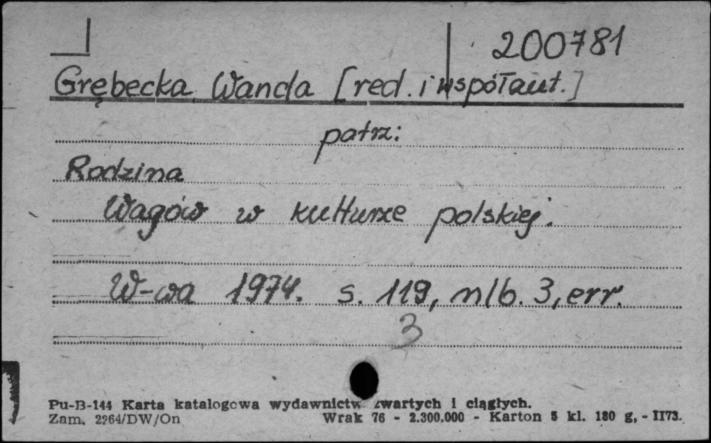 200781
Grębecka Wanda [red. i współaut.]
patrz:
Rodzina
Wagów w kulturze polskiej.
W-wa 1974. s. 119, nlb. 3, err.
3
Pu-B-144 Karta katalogowa wydawnictw zwartych i ciągłych.
Zam. 2264/DW/On Wrak 76 - 2.300.000 - Karton 5 kl. 180 g, - II73.